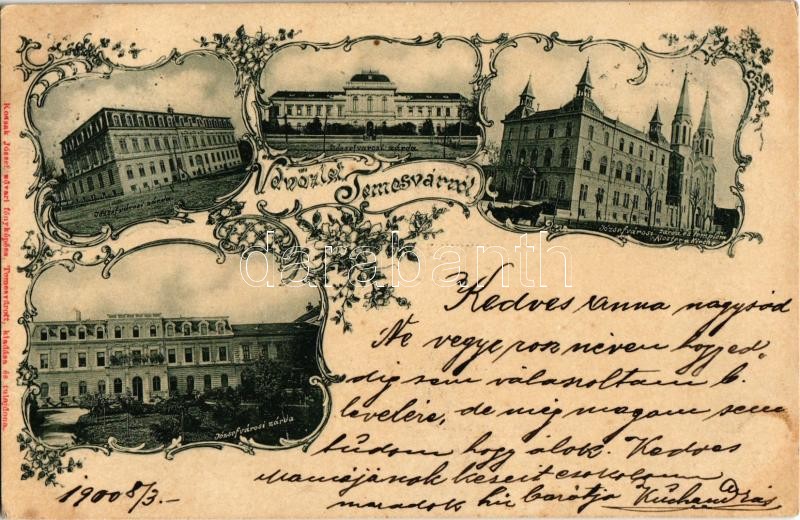 Józsefvárosi zárda
Józsefvárosi zárda
Józsefvárosi zárda és templom
Kloster u. Kirche
Üdvözlet Temesvárról!
Józsefvárosi zárda
Kossak József udvari fényképész, Temesvárott, kiadása és tulajdona.
darabanth
Kedves Anna nagysád
Ne vegye rosz néven hogy ed-
dig sem válaszoltam b.
levelére, de még magam sem
tudom hogy álok. Kedves
Mamájának kezeit csokolom
maradok hű barátja
1900 8/3.-